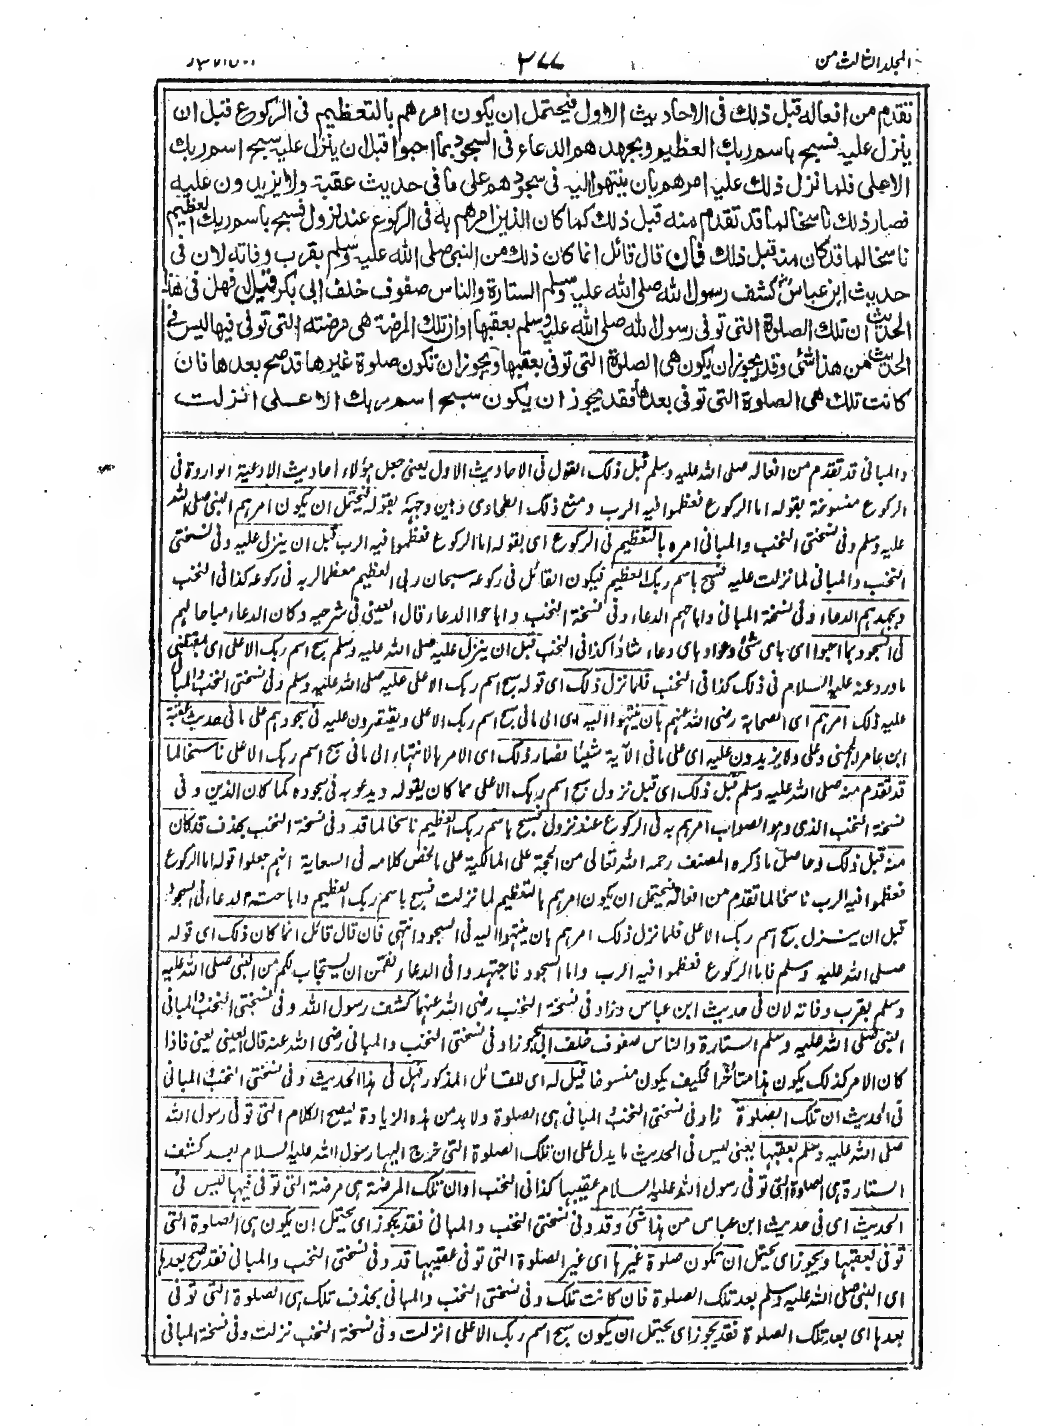 المجلد الثالث من ٣٧٧
تقدم من افعاله قبل ذلك فى الاحاديث الاول فيحتمل ان يكون امرهم بالتعظيم فى الركوع قبل ان
ينزل عليه فسبح باسم ربك العظيم ويجهدهم الدعاء فى السجود بما احبوا قبل ان ينزل عليه سبح اسم ربك
الاعلى فلما نزل ذلك عليه امرهم بان ينتهوا اليه فى سجودهم على ما فى حديث عقبة ولا يزيدون عليه
فصار ذلك ناسخا لما قد تقدم منه قبل ذلك كما كان الذين امرهم به فى الركوع عند نزول فسبح باسم ربك العظيم
ناسخا لما قد كان منه قبل ذلك فان قال قائل انما كان ذلك من النبى صلى الله عليه وسلم بقرب وفاته لان فى
حديث ابن عباس كشف رسول الله صلى الله عليه وسلم الستارة والناس صفوف خلف ابى بكر قيل فهل فى هذا
الحديث ان تلك الصلوة التى توفى رسول الله صلى الله عليه وسلم بعقبها او ان تلك المرضة هى مرضته التى توفى فيها ليس فى
الحديث من هذا شئ وقد يجوز ان يكون هى الصلوة التى توفى بعقبها ويجوز ان تكون صلوة غيرها قد صح بعدها فان
كانت تلك هى الصلوة التى توفى بعدها فقد يجوز ان يكون سبح اسم ربك الاعلى انزلت
والمبانى قد تقدم من افعاله صلى الله عليه وسلم قبل ذلك القول فى الاحاديث الاول يعنى جعل هؤلاء احاديث الادعية الواردة فى
الركوع منسوخة بقوله اما الركوع فعظموا فيه الرب ومنع ذلك الطحاوى وبين وجهه بقوله فيحتمل ان يكون امرهم النبى صلى الله
عليه وسلم وفى نسختى النخب والمبانى امره بالتعظيم فى الركوع اى بقوله اما الركوع فعظموا فيه الرب قبل ان ينزل عليه وفى نسختى
النخب والمبانى لما نزلت عليه فسبح باسم ربك العظيم فيكون القائل فى ركوعه سبحان ربى العظيم معظما لربه فى ركوعه كذا فى النخب
ويجهدهم الدعاء وفى نسخة المبانى واباحهم الدعاء وفى نسخة النخب واباحوا الدعاء قال العينى فى شرحيه وكان الدعاء مباحا لهم
فى السجود بما احبوا اى باى شئ دعاء وباى دعاء شاؤا كذا فى النخب قبل ان ينزل عليه صلى الله عليه وسلم سبح اسم ربك الاعلى اى بمقتضى
ماورد عنه عليه السلام فى ذلك كذا فى النخب فلما نزل ذلك اى قوله سبح اسم ربك الاعلى عليه صلى الله عليه وسلم وفى نسختى النخب والمبانى
عليه ذلك امرهم اى الصحابة رضى الله عنهم بان ينتهوا اليه اى الى ما فى سبح اسم ربك الاعلى ويقتصرون عليه فى سجودهم على ما فى حديث عقبة
ابن عامر الجهنى وعلى ولا يزيدون عليه اى على ما فى الآية شيئا فصار ذلك اى الامر بالانتهاء الى ما فى سبح اسم ربك الاعلى ناسخا لما
قد تقدم منه صلى الله عليه وسلم قبل ذلك اى قبل نزول سبح اسم ربك الاعلى مما كان يقوله ويدعو به فى سجوده كما كان الذين وفى
نسخة النخب الذى وهو الصواب امرهم به فى الركوع عند نزول فسبح باسم ربك العظيم ناسخا لما قد وفى نسخة النخب بحذف قد كان
منه قبل ذلك وحاصل ما ذكره المصنف رحمه الله تعالى من الحجة على المالكية على ما لخص كلامه فى السعاية انهم جعلوا قوله اما الركوع
فعظموا فيه الرب ناسخا لما تقدم من افعاله فيحتمل ان يكون امرهم بالتعظيم لما نزلت فسبح باسم ربك العظيم واباحته الدعاء فى السجود
قبل ان ينزل سبح اسم ربك الاعلى فلما نزل ذلك امرهم بان ينتهوا اليه فى السجود انتهى فان قال قائل انما كان ذلك اى قوله
صلى الله عليه وسلم فاما الركوع فعظموا فيه الرب واما السجود فاجتهدوا فى الدعاء فقمن ان يستجاب لكم من النبى صلى الله عليه
وسلم بقرب وفاته لان فى حديث ابن عباس وزاد فى نسخة النخب رضى الله عنهما كشف رسول الله وفى نسختى النخب والمبانى
النبى صلى الله عليه وسلم الستارة والناس صفوف خلف ابى بكر زاد فى نسختى النخب والمبانى رضى الله عنه قال العينى يعنى فاذا
كان الامر كذلك يكون هذا متأخرا فكيف يكون منسوخا قيل له اى للقائل المذكور فهل فى هذا الحديث وفى نسختى النخب والمبانى
فى الحديث ان تلك الصلوة زاد فى نسختى النخب والمبانى هى الصلوة ولا بد من هذه الزيادة ليصح الكلام التى توفى رسول الله
صلى الله عليه وسلم بعقبها يعنى ليس فى الحديث ما يدل على ان تلك الصلوة التى خرج اليها رسول الله عليه السلام بعد كشف
الستارة هى الصلوة التى توفى رسول الله عليه السلام عقيبها كذا فى النخب او ان تلك المرضة هى مرضة التى توفى فيها ليس فى
الحديث اى فى حديث ابن عباس من هذا شئ وقد وفى نسختى النخب والمبانى فقد يجوز اى يحتمل ان يكون هى الصلوة التى
توفى بعقبها ويجوز اى يحتمل ان تكون صلوة غيرها اى غير الصلوة التى توفى عقيبها قد وفى نسختى النخب والمبانى فقد صح بعدها
اى النبى صلى الله عليه وسلم بعد تلك الصلوة فان كانت تلك وفى نسختى النخب والمبانى بحذف تلك هى الصلوة التى توفى
بعدها اى بعد تلك الصلوة فقد يجوز اى يحتمل ان يكون سبح اسم ربك الاعلى انزلت وفى نسخة النخب نزلت وفى نسخة المبانى